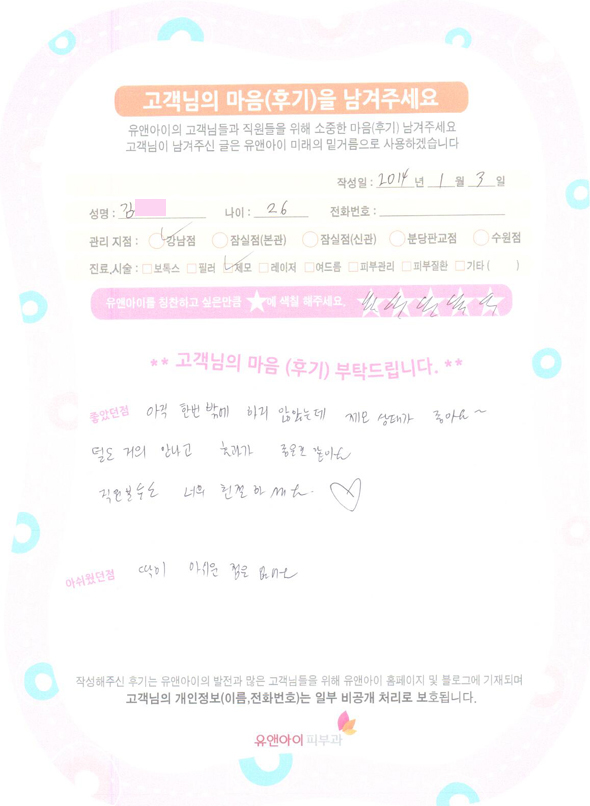 고객님의 마음(후기)을 남겨주세요
유앤아이의 고객님들과 직원들을 위해 소중한 마음(후기) 남겨주세요
고객님이 남겨주신 글은 유앤아이 미래의 밑거름으로 사용하겠습니다
작성일 : 2014 년 1 월 3 일
성명 : 김 나이 : 26 전화번호 :
관리 지점 : 강남점 잠실점(본관) 잠실점(신관) 분당판교점 수원점
진료,시술 : 보톡스 필러 제모 레이저 여드름 피부관리 피부질환 기타 ( )
유앤아이를 칭찬하고 싶은만큼 ★에 색칠 해주세요.
** 고객님의 마음 (후기) 부탁드립니다. **
좋았던점 아직 한번 밖에 하지 않았는데 제모 상태가 좋아요~
털도 거의 안나고 효과가 좋은것 같아요
직원분들도 너무 친절하세요. ♡
아쉬웠던점 딱히 아쉬운 점은 없어요
작성해주신 후기는 유앤아이의 발전과 많은 고객님들을 위해 유앤아이 홈페이지 및 블로그에 기재되며
고객님의 개인정보(이름,전화번호)는 일부 비공개 처리로 보호됩니다.
유앤아이 피부과